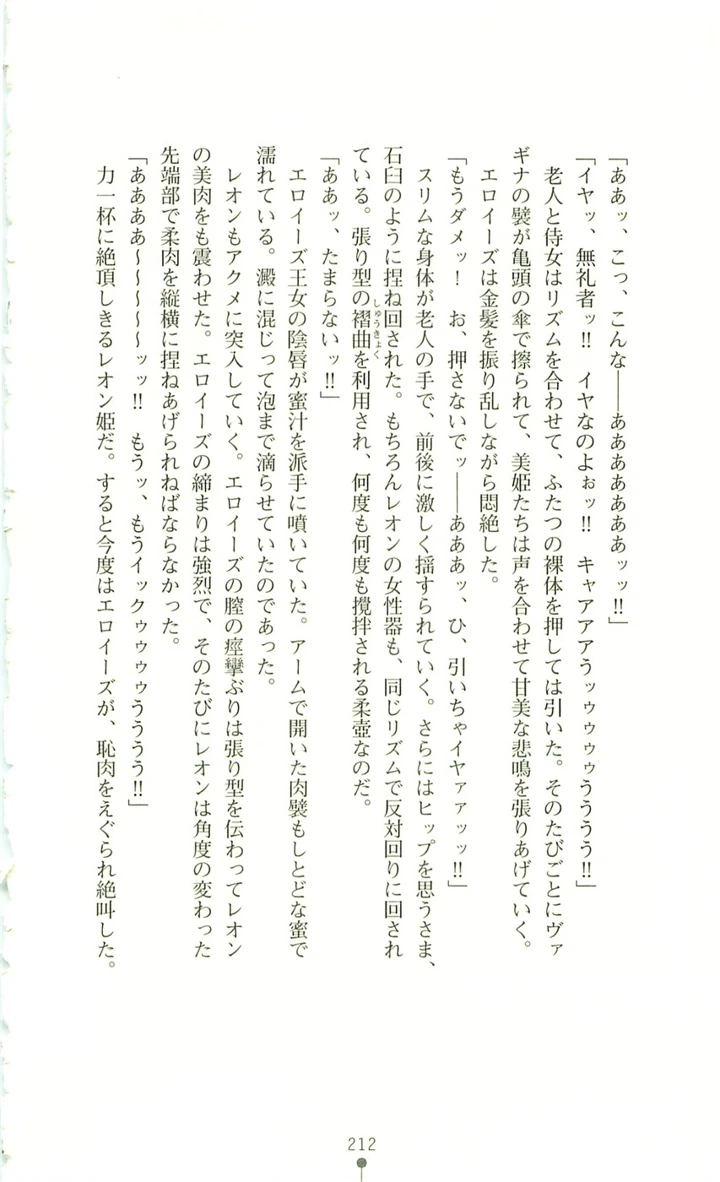 「ああッ、こっ、こんな――ああああああああッッ!!」
「イヤッ、無礼者ッ!! イヤなのよぉッ!! キャアアアうッゥゥゥゥうううう!!」
老人と侍女はリズムを合わせて、ふたつの裸体を押しては引いた。そのたびごとにヴァ
ギナの襞が亀頭の傘で擦られて、美姫たちは声を合わせて甘美な悲鳴を張りあげていく。
エロイーズは金髪を振り乱しながら悶絶した。
「もうダメッ! お、押さないでッ――あああッ、ひ、引いちゃイヤァァッッ!!」
スリムな身体が老人の手で、前後に激しく揺すられていく。さらにはヒップを思うさま、
石臼のように捏ね回された。もちろんレオンの女性器も、同じリズムで反対回りに回され
ている。張り型の褶曲しゅうきょくを利用され、何度も何度も攪拌される柔壺なのだ。
「ああッ、たまらないッ!!」
エロイーズ王女の陰唇が蜜汁を派手に噴いていた。アームで開いた肉襞もしとどな蜜で
濡れている。澱に混じって泡まで滴らせていたのであった。
レオンもアクメに突入していく。エロイーズの膣の痙攣ぶりは張り型を伝わってレオン
の美肉をも震わせた。エロイーズの締まりは強烈で、そのたびにレオンは角度の変わった
先端部で柔肉を縦横に捏ねあげられねばならなかった。
「ああああ～～～～～ッッ!! もうッ、もうイックゥゥゥゥうううう!!」
力一杯に絶頂しきるレオン姫だ。すると今度はエロイーズが、恥肉をえぐられ絶叫した。
212